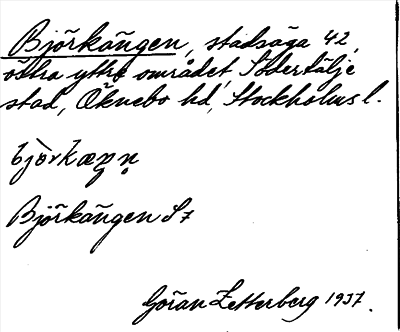 Björkängen, stadsäga 42,
östra yttre området, Södertälje
stad, Öknebo hd, Stockholms l.
Björkängen S7
Göran Zetterberg 1937.